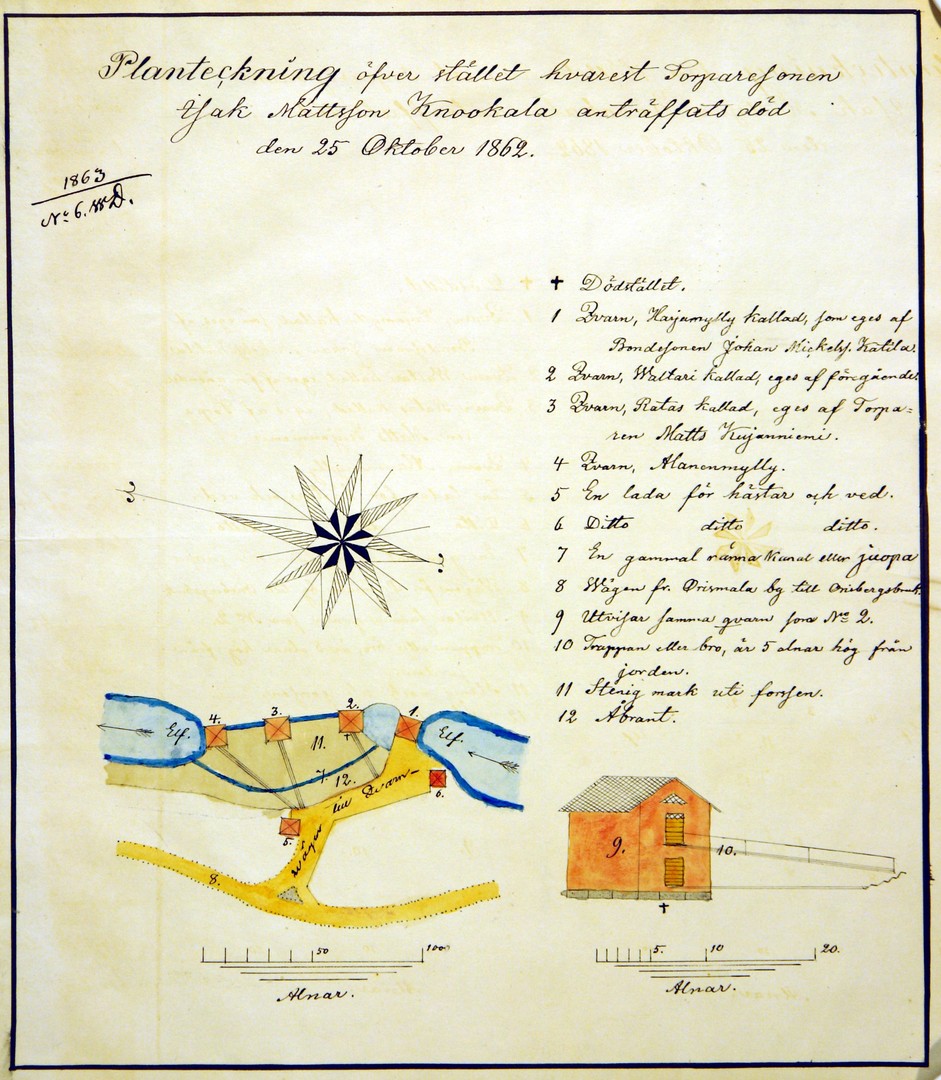 Planteckning öfver stället hvarest Torparesonen
Isak Mattsson Knookala anträffats död
den 25 Oktober 1862.
1863
No 6. WD.
✝ Dödstället.
1 Qvarn, Harjamylly kallad, som eges af
Bondesonen Johan Mickelss. Katila.
2 Qvarn, Waltari kallad, eges af föregående.
3 Qvarn, Ratas kallad, eges af Torpa-
ren Matts Kujanniemi.
4 Qvarn, Alanenmylly.
5 En lada för hästar och ved.
6 Ditto ditto ditto.
7 En gammal ränna kanal eller juopa
8 Wägen fr. Örismala by till Orisbergsbruk.
9 Utvisar samma qvarn som No 2.
10 Trappan eller bro, är 5 alnar hög från
jorden.
11 Stenig mark uti forssen.
12 Åbrant.
Elf.
4.
3.
2.
✝
1.
Elf.
11.
7.
12.
6.
5.
wägen till Qvarn
8.
9.
10.
✝
50
100
Alnar.
5.
10
20.
Alnar.